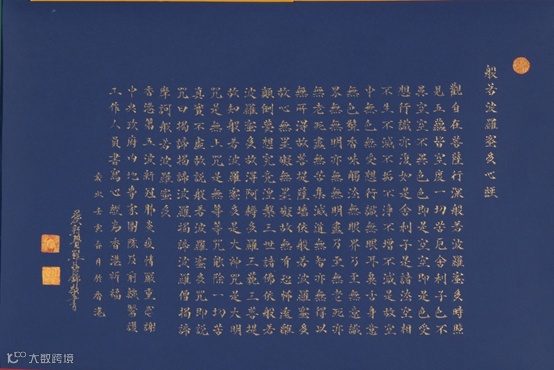 般若波羅蜜多心經
觀自在菩薩行深般若波羅蜜多時照
見五蘊皆空度一切苦厄舍利子色不
異空空不異色色即是空空即是色受
想行識亦復如是舍利子是諸法空相
不生不滅不垢不淨不增不減是故空
中無色無受想行識無眼耳鼻舌身意
無色聲香味觸法無眼界乃至無意識
界無無明亦無無明盡乃至無老死亦
無老死盡無苦集滅道無智亦無得以
無所得故菩提薩埵依般若波羅蜜多
故心無罣礙無罣礙故無有恐怖遠離
顛倒夢想究竟涅槃三世諸佛依般若
波羅蜜多故得阿耨多羅三藐三菩提
故知般若波羅蜜多是大神咒是大明
咒是無上咒是無等等咒能除一切苦
真實不虛故說般若波羅蜜多咒即說
咒曰揭諦揭諦波羅揭諦波羅僧揭諦
摩訶般若波羅蜜多
香港第五波新冠肺炎疫情嚴重感謝
中央政府內地專家團隊及前線醫護
工作人員書寫心經為香港祈福
歲次壬寅春月於香港
大数跨境